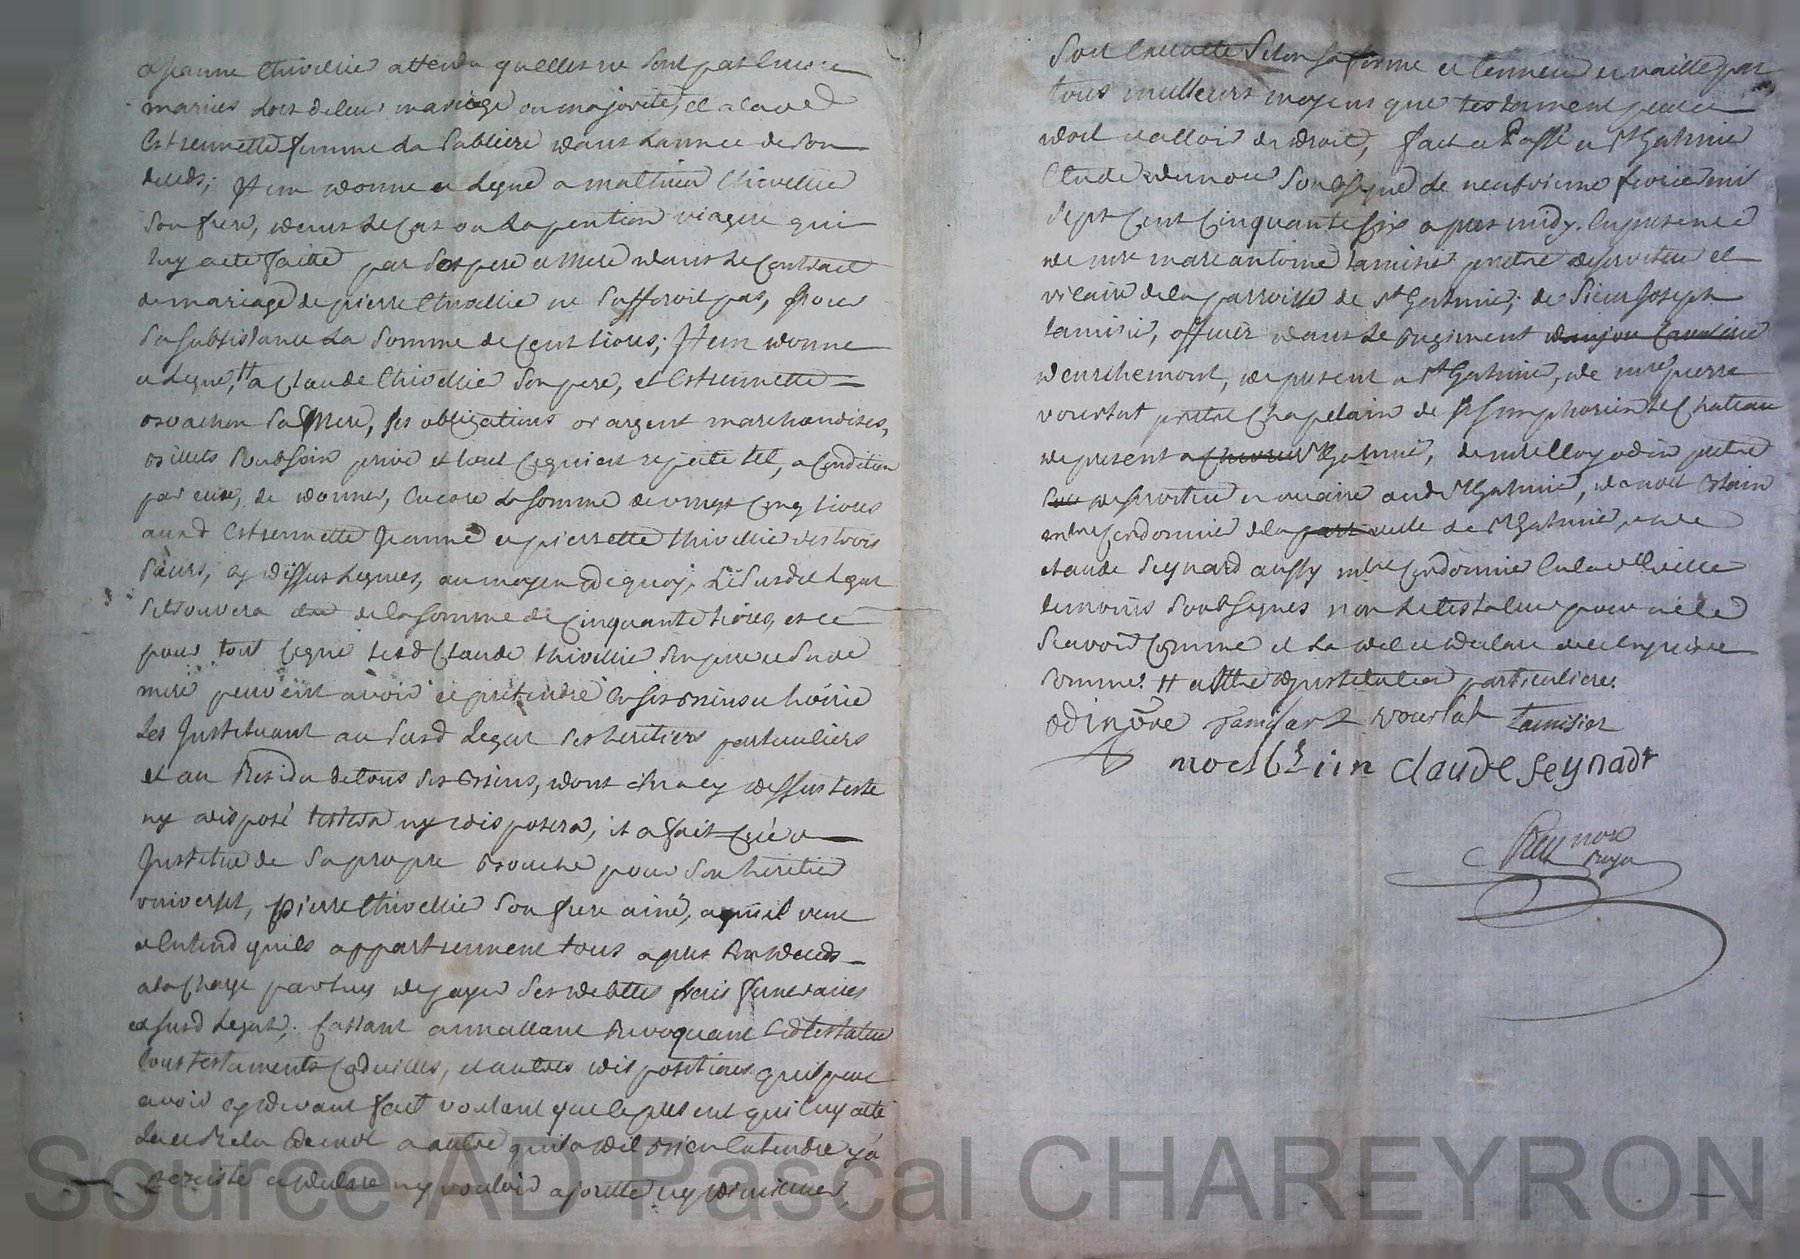 a Jeanne thivellier attendu quelles ne sont pas encore
mariees lors de leur mariage ou majorité, et a lad
Estiennette femme La Sabliere dans Lannee de son
deceds; Item donne et Legue a mathieu thivellier
son frere, dans Le cas ou La pention viagere qui
luy a ete faitte par Ses pere et Mere dans Le Contract
de mariage de pierre thivellier ne Suffiroit pas, pour
Sa Subsistance La Somme de Cent livres; Item donne
et Legue, a Claude thivellier Son pere, et Estiennette
Sa Mere, ses obligations or argent marchandises,
billets Soubsein privé et tout ce qui est a Condition
par eux, de donner, Encore La Somme de vingt Cinq livres
aud Estiennette Jeanne et pierrette thivellier Ses trois
Sœurs, cy dessus Leguees, au moyen de quoy, Le Susdit Legat
Se trouvera de la Somme de Cinquante livres, et ce
pour tout ce que lesd Claude thivellier Son pere et Sa de
mere peuvent avoir et pretendre En ses biens et hoirie
Les Instituant au Susd Legat Ses heritiers particuliers
et au Residu de tous Ses biens, dont il n'a cy dessus testé
ny disposé testera ny disposera, il a fait Créé et
Institué de Sa propre bouche pour Son heritier
universel, pierre thivellier Son frere ainé, a qui il veut
et Entend quils appartiennent tous apres Son deceds
a la Charge par luy de payer Ses debttes frais funeraires
et Susd Legats; Cassant annullant Revoquant Led testateur
tous testaments Codicilles, et autres dispositions quil peut
avoir cy devant fait voulant que le present qui luy a eté
Leu et Releu de mot a autre quil a dit bien Entendre y a
persisté et declaré ny vouloir ajoutter ny diminuer,
Soit Executté Selon Sa forme et teneur et vaille par
tous meilleurs moyens que testament peut et
doit valloir de droit, fait et Passé a St Galmier
Etude de nous Soubsigné Le neufvieme fevrier mil
Sept Cent Cinquante Six apres midy. En presence
de mre marc antoine tamisier pretre desservitur et
vicaire de la parroisse de St Galmier; de Sieur Joseph
tamisier, officier dans Le Regiment danjou
, de present a St Galmier, de mre pierre
vourlat pretre Chapelain de St Simphorien Le Chateau
de present a St Galmier, de mre odin pretre
desservitur et vicaire aud St Galmier, de
mtre Cordonnier de la ville de St Galmier, et de
claude Seynard aussy mtre Cordonnier En lad ville
temoins Soubsignes non Le testateur pour ne le
Scavoir Comme il La dit et declaré de ce Enquis et
Sommé. a titre dinstitution particuliere.
odin ptre tamisier vourlat tamisier
claude Seynadt